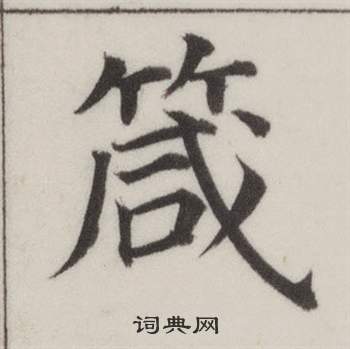 箴
词典网